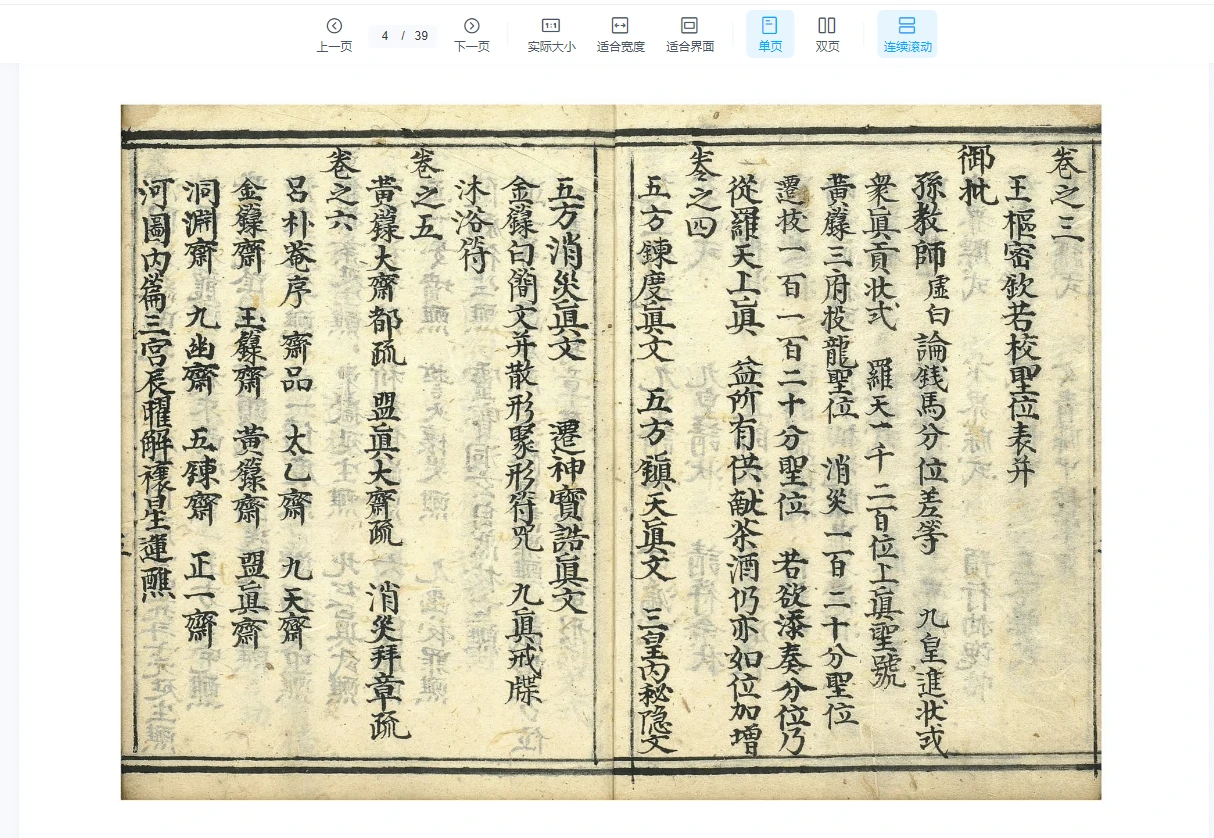 上一页
4 / 39
下一页
1:1
实际大小
适合宽度
适合界面
单页
双页
连续滚动
卷之三
王樞密欽若校聖位表并
御批
孫教師虛白論錢馬分位差等 九皇進状式
衆眞貢状式 羅天一千二百位上眞聖號
黃籙三府投龍聖位 消災一百二十分聖位
遷拔一百一百二十分聖位 若欲添奏分位乃
從羅天上眞 益所有供献茶酒仍亦如位加增
卷之四
五方鍊度眞文 五方鎮天眞文 三皇内秘隐文
五方消災眞文 遷神寶誥眞文
金籙白簡文并散形聚形符咒 九眞戒牒
沐浴符
卷之五
黃籙大齋都疏 盟眞大齋疏 消災拜章疏
卷之六
呂朴菴序齋品 太乙齋 九天齋
金籙齋 玉籙齋 黃籙齋 盟眞齋
洞淵齋 九幽齋 五鍊齋 正一齋
河圖内篇三宫辰曜解禳星運醮